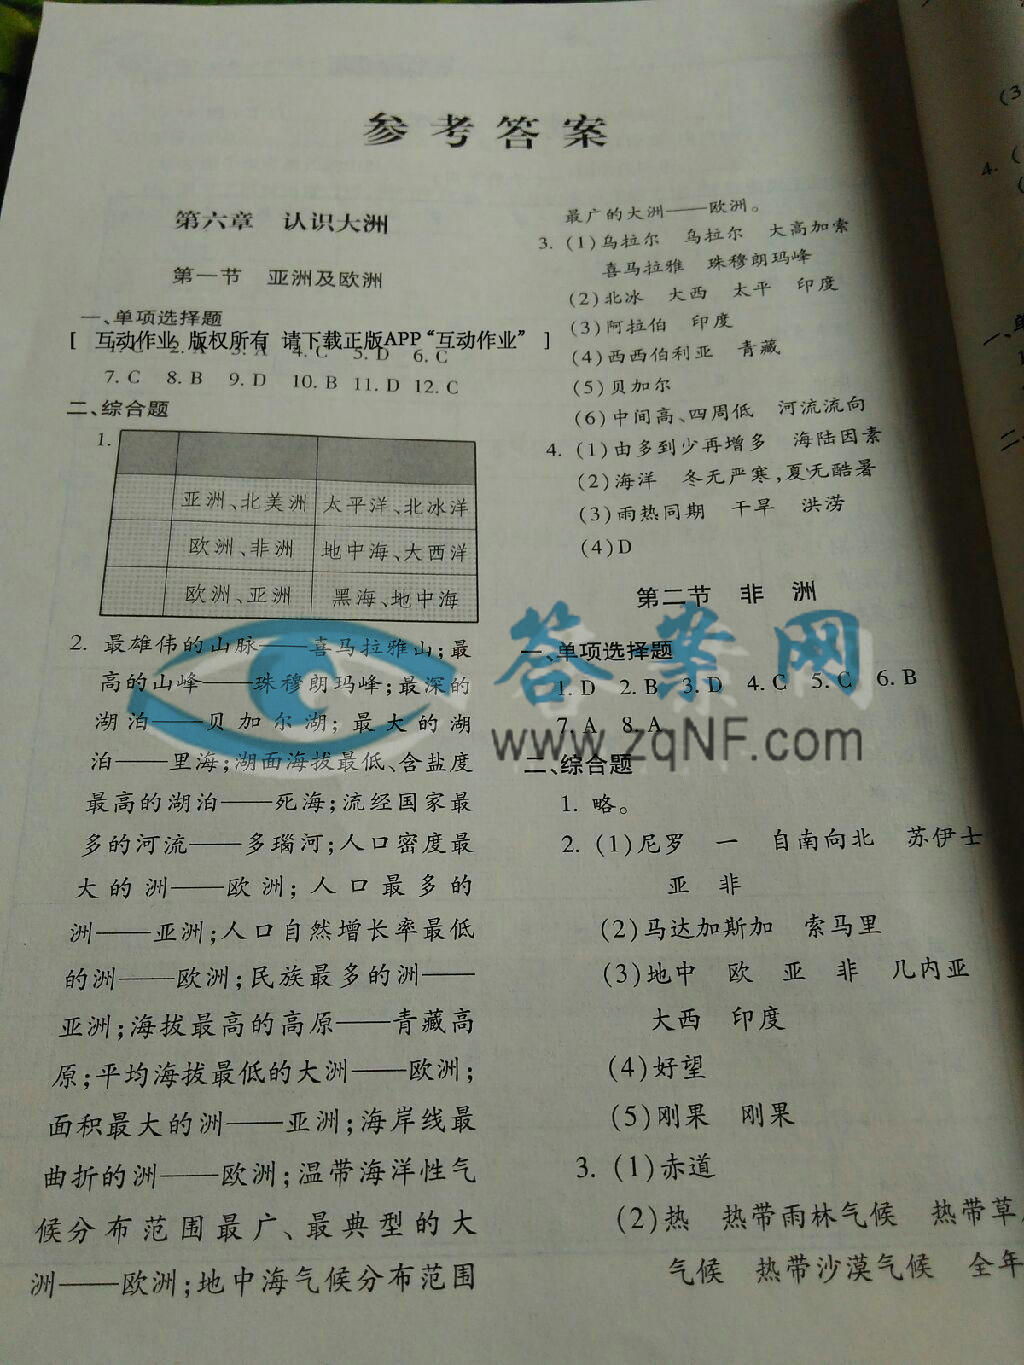 参考答案
第六章 认识大洲
第一节 亚洲及欧洲
一、单项选择题
[ 互动作业 版权所有 请下载正版APP“互动作业” ]
1. C 2. A 3. A 4. C 5. D 6. C
7. C 8. B 9. D 10. B 11. D 12. C
二、综合题
1.
亚洲、北美洲 太平洋、北冰洋
欧洲、非洲 地中海、大西洋
欧洲、亚洲 黑海、地中海
2. 最雄伟的山脉——喜马拉雅山;最
高的山峰——珠穆朗玛峰;最深的
湖泊——贝加尔湖;最大的湖
泊——里海;湖面海拔最低、含盐度
最高的湖泊——死海;流经国家最
多的河流——多瑙河;人口密度最
大的洲——欧洲;人口最多的
洲——亚洲;人口自然增长率最低
的洲——欧洲;民族最多的洲——
亚洲;海拔最高的高原——青藏高
原;平均海拔最低的大洲——欧洲;
面积最大的洲——亚洲;海岸线最
曲折的洲——欧洲;温带海洋性气
候分布范围最广、最典型的大
洲——欧洲;地中海气候分布范围
最广的大洲——欧洲。
3. (1)乌拉尔 乌拉尔 大高加索
喜马拉雅 珠穆朗玛峰
(2)北冰 大西 太平 印度
(3)阿拉伯 印度
(4)西西伯利亚 青藏
(5)贝加尔
(6)中间高、四周低 河流流向
4. (1)由多到少再增多 海陆因素
(2)海洋 冬无严寒,夏无酷暑
(3)雨热同期 干旱 洪涝
(4)D
第二节 非洲
一、单项选择题
1. D 2. B 3. D 4. C 5. C 6. B
7. A 8. A
二、综合题
1. 略。
2. (1)尼罗 一 自南向北 苏伊士
亚 非
(2)马达加斯加 索马里
(3)地中 欧 亚 非 几内亚
大西 印度
(4)好望
(5)刚果 刚果
3. (1)赤道
(2)热 热带雨林气候 热带草
气候 热带沙漠气候 全年
答案网
www.zqNF.com
(3
4. (
(
一、
1
二